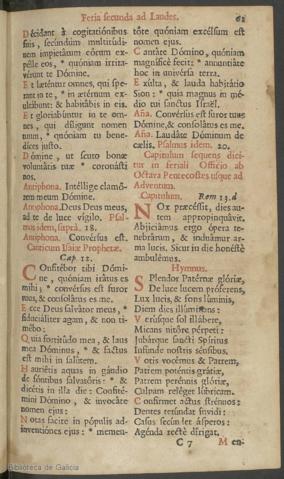 Feria secunda ad Laudes. 62
Décidant à cogitatiónibus
suis, secúndùm multitúdi-
nem impietátum eórum ex-
pélle eos, * quóniam irrita-
vérunt te Dómine.
Et læténtur omnes, qui spe-
rant in te, * in ætérnum ex-
ultábunt: & habitábis in eis.
Et gloriabúntur in te om-
nes, qui díligunt nomen
tuum, * quóniam tu bene-
díces justo.
Dómine, ut scuto bonæ
voluntátis tuæ * coronásti
nos.
Antiphona. Intéllige clamó-
rem meum Dómine.
Antiphona. Deus Deus meus,
ad te de luce vígilo. Psal-
mus idem, suprà. 18.
Antiphona. Convérsus est.
Canticum Isaiæ Prophetæ.
Cap. 12.
Confitébor tibi Dómi-
ne, quóniam irátus es
mihi, * convérsus est furor
tuus, & consolátus es me.
Ecce Deus salvátor meus, *
fiduciáliter agam, & non ti-
mébo:
Quia fortitúdo mea, & laus
mea Dóminus, * & factus
est mihi in salútem.
Hauriétis aquas in gáudio
de fóntibus salvatóris: * &
dicétis in illa die: Confité-
mini Dómino, & invocáte
nomen ejus:
Notas fácite in pópulis ad-
inventiónes ejus: * memen-
tôte quóniam excélsum est
nomen ejus.
Cantáte Dómino, quóniam
magnificè fecit: * annuntiáte
hoc in univérsa terra.
Exúlta, & lauda habitátio
Sion: * quia magnus in mé-
dio tui sanctus Israël.
Aña. Convérsus est furor tuus
Dómine, & consolátus es me.
Aña. Laudáte Dóminum de
cælis. Psalmus idem. 20.
Capitulum sequens dici-
tur in feriali Officio ab
Octava Pentecostes usque ad
Adventum.
Capitulum. Rom 13. d
Nox præcéssit, dies au-
tem appropinquávit.
Abjiciámus ergo ópera te-
nebrárum, & induámur ar-
ma lucis. Sicut in die honéstè
ambulémus.
Hymnus.
Splendor Patérnæ glóriæ,
De luce lucem próferens,
Lux lucis, & fons lúminis,
Diem dies illúminans:
Verúsque sol illábere,
Micans nitóre pérpeti:
Jubárque sancti Spíritus
Infúnde nostris sénsibus.
Votis vocémus & Patrem,
Patrem poténtis grátiæ,
Patrem perénnis glóriæ,
Culpam reléget lúbricam.
Confírmet actus strénuos:
Dentes retúndat ínvidi:
Casus secúndet ásperos:
Agénda rectè dírigat.
C 7 Men-
Biblioteca de Galicia